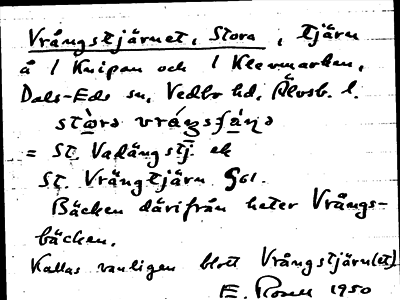 Vrångstjärnet, Stora, tjärn
å 1 Knipan och 1 Klevmarken,
Dals-Eds sn, Vedbo hd, Älvsb. l.
= St. Vadängstj. ek
St. Vrångtjärn G61.
Bäcken därifrån heter Vrångs-
bäcken.
Kallas vanligen blott Vrångstjärn(et)
E. Rosell 1950